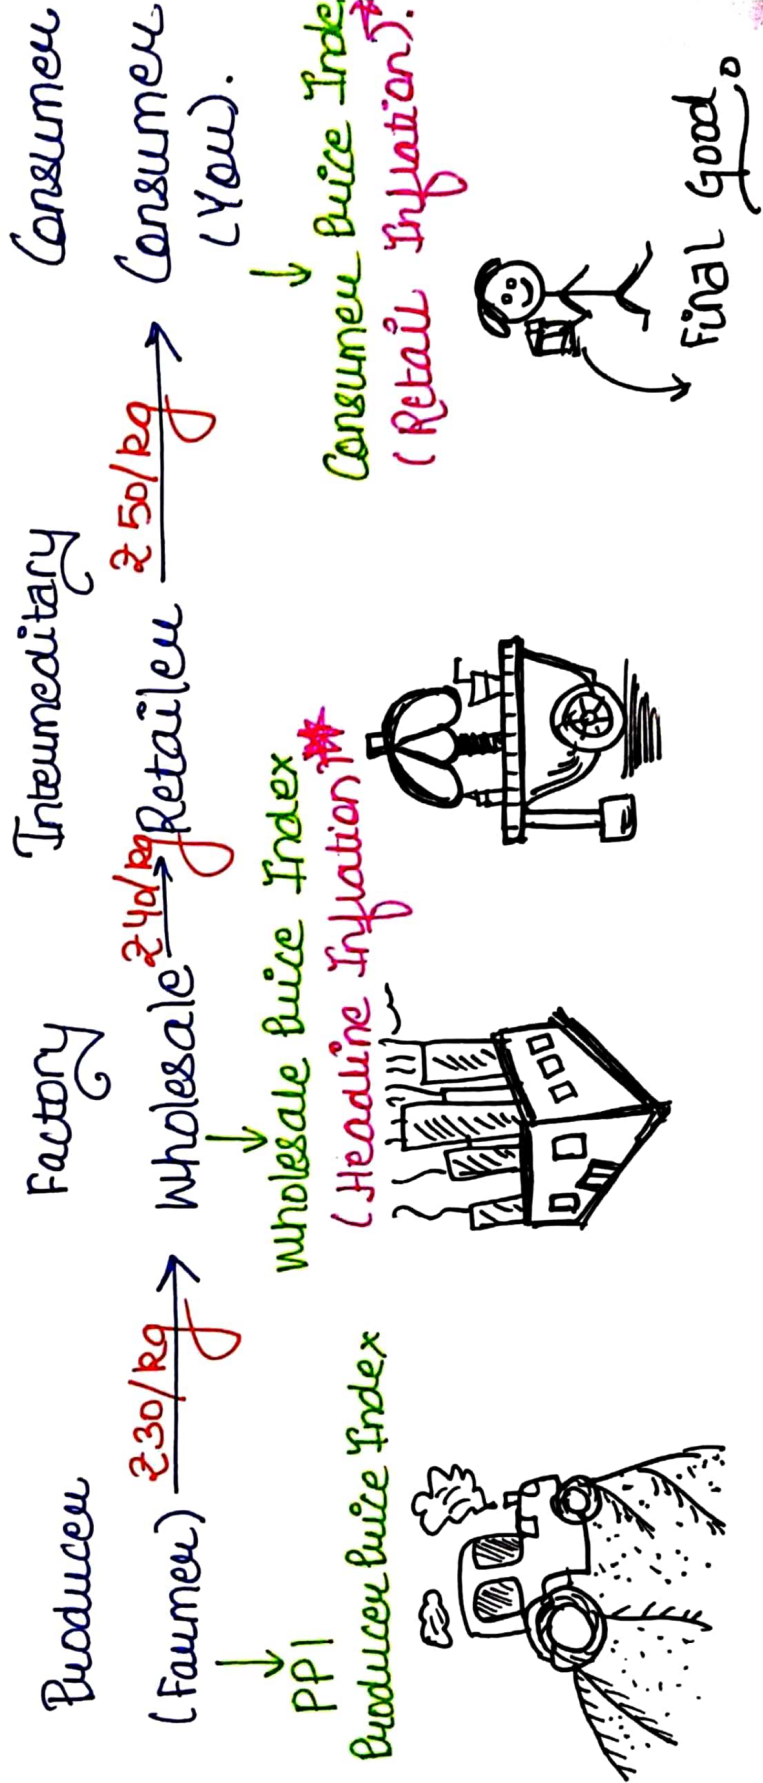 Producer Factory Intermeditary Consumer
(Farmer) ₹30/kg Wholesale ₹40/kg Retailer ₹50/kg Consumer
(You).
PPI
Producer Price Index
Wholesale Price Index
(Headline Inflation)
Consumer Price Inde
(Retail Inflation).
Final Good.